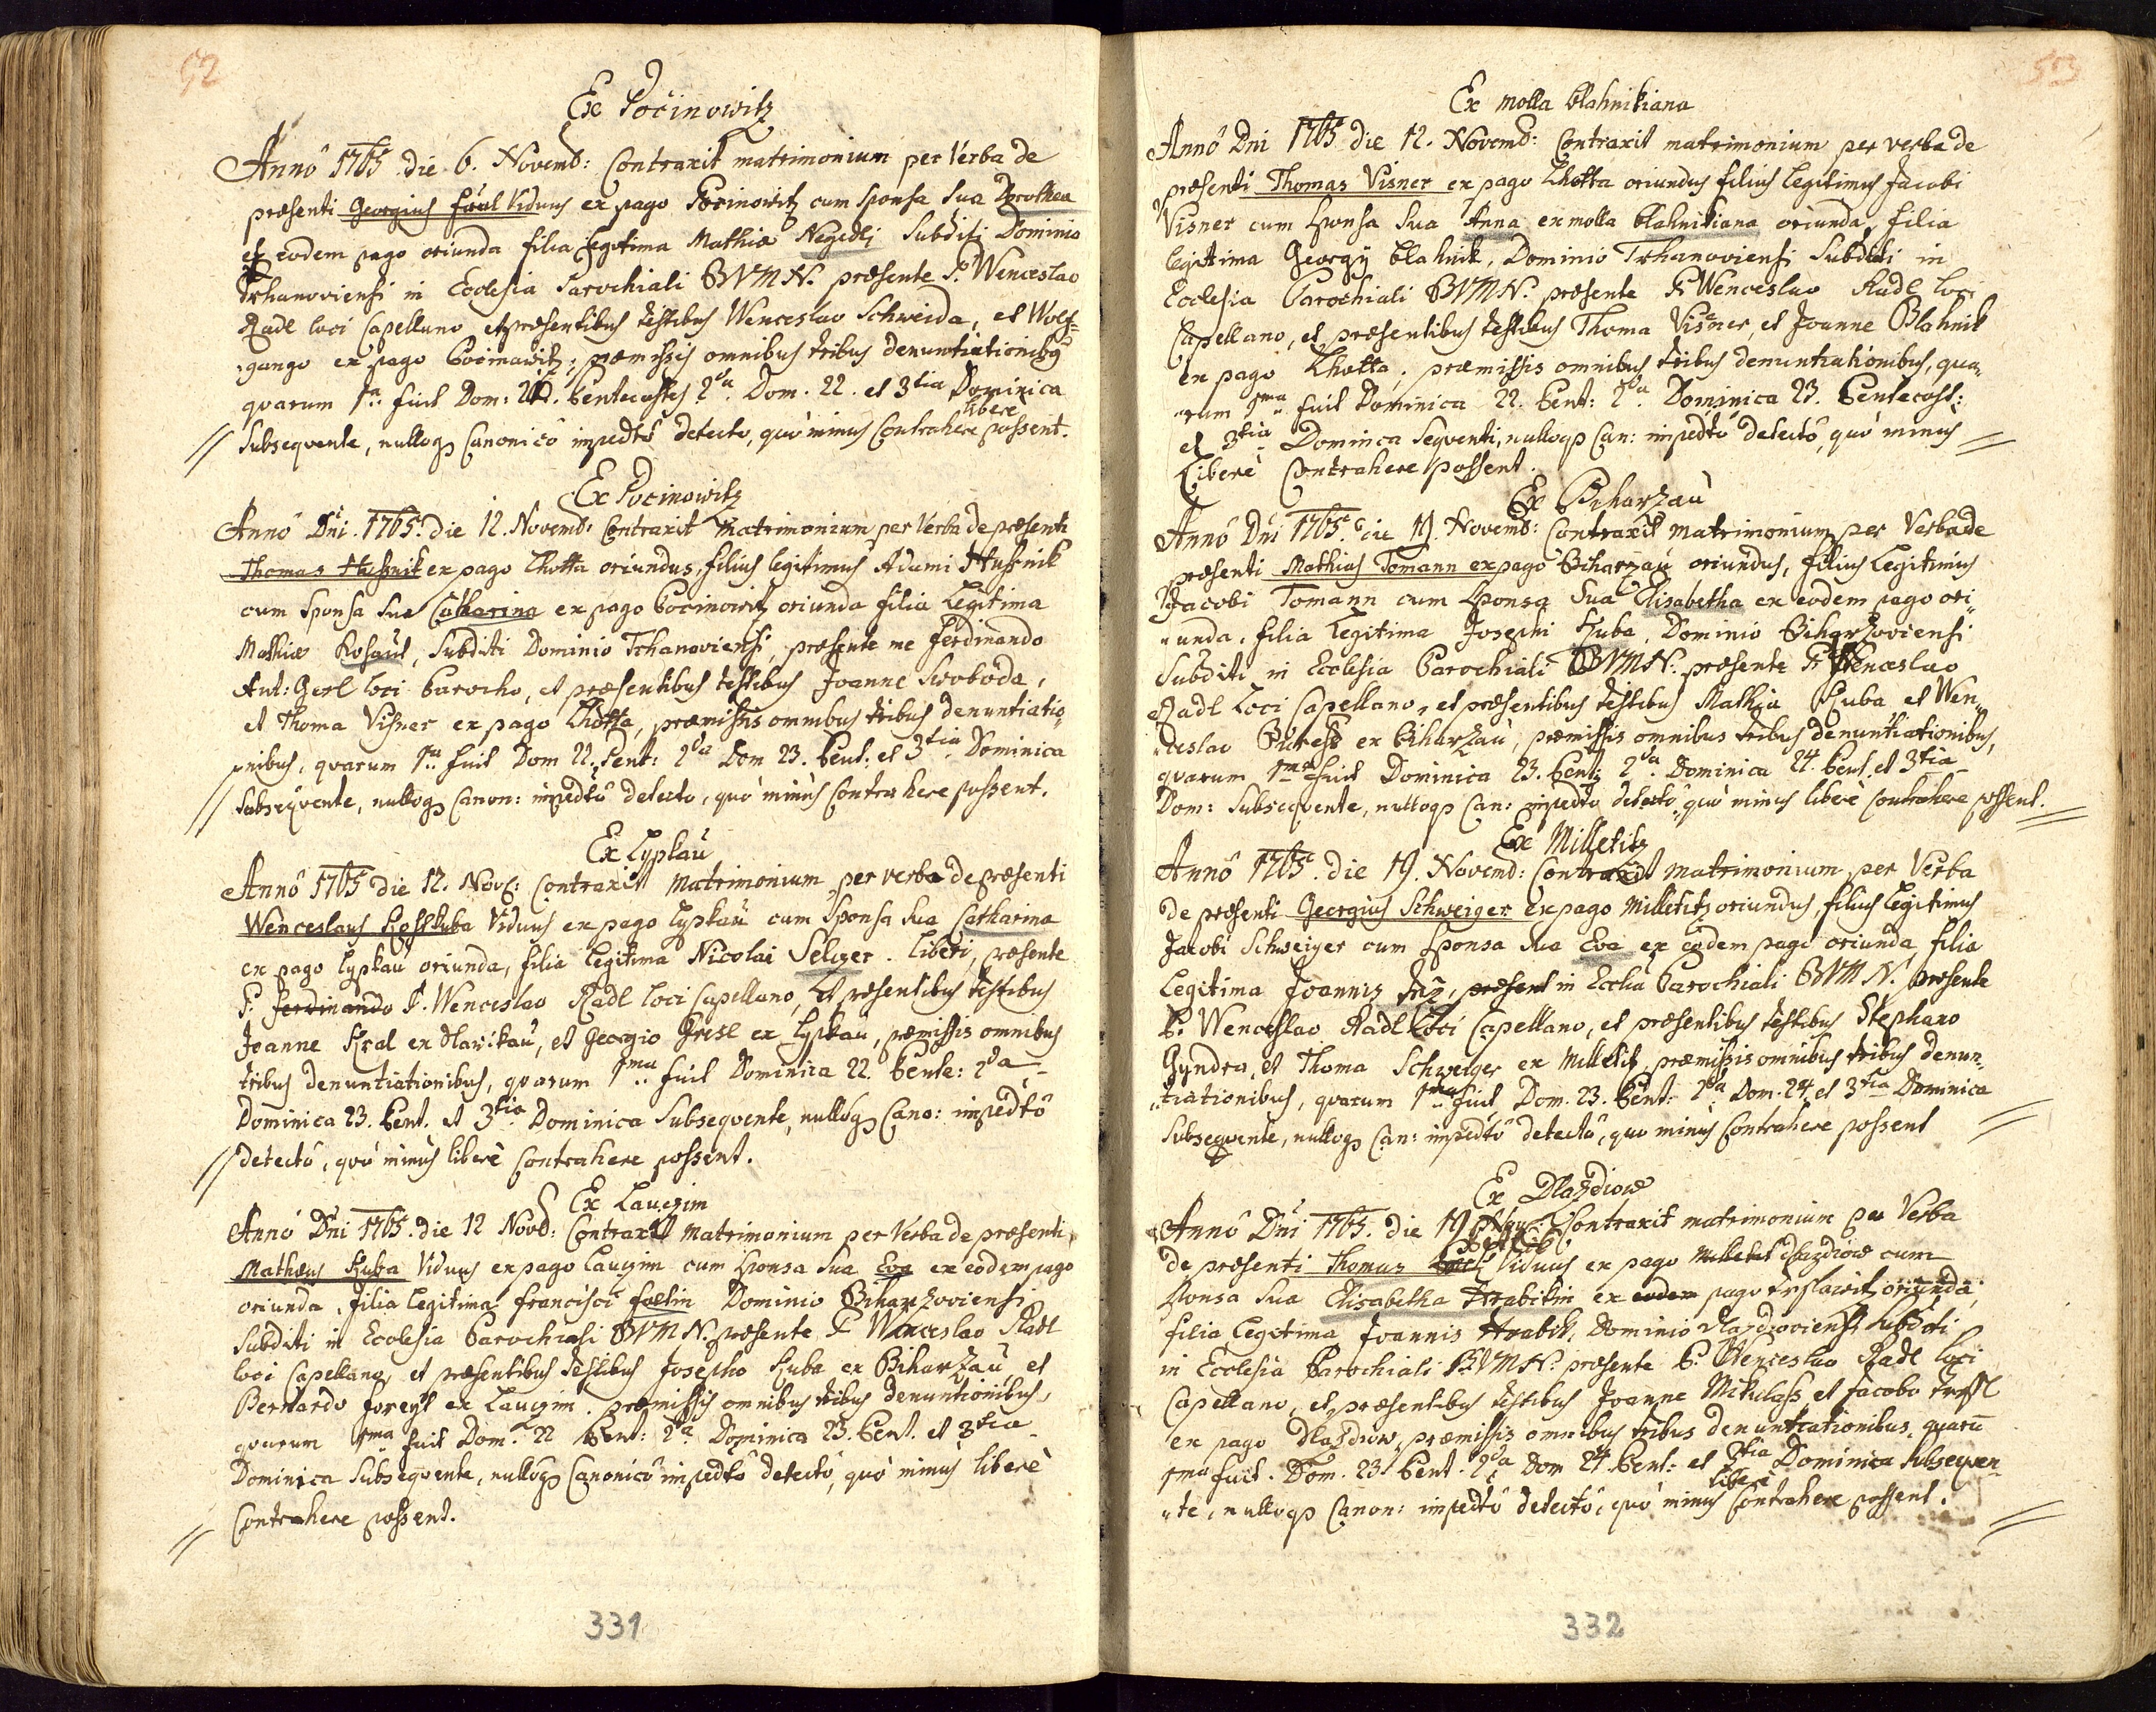 52
Ex Pocinowitz
Anno 1765 die 6. Novemb: Contraxit matrimonium per Verba de
præsenti Georgius Viduus ex pago Pocinowitz cum Sponsa sua Dorothea
ex eodem pago oriunda filia legitima Mathiæ Negedli Subditi Dominio
Trhanoviensi in Ecclesia Parochiali BVMN. præsente P. Wenceslao
Radl loci Capellano, et præsentibus testibus Wenceslao Schweida, et Wolf=
gango ex pago Pocinowitz, præmissis omnibus tribus denuntiationibus
quarum 1ma fuit Dom: Pentecostes 2da Dom. 22. et 3tia Dominica
Subsequente, nulloqs Canonico impedto detecto, quò minus libere Contrahere possent.
Ex Pocinowitz
Anno Dni. 1765. die 12. Novemb: Contraxit Matrimonium per Verba de præsenti
Thomas Hussnik ex pago Lhotta oriundus, filius legitimus Adami Hussnik
cum Sponsa sua Catharina ex pago Pocinowitz oriunda filia Legitima
Mathiæ Kohaut, Subditi Dominio Trhanoviensi, præsente me Ferdinando
Ant: Gerl loci Parocho, et præsentibus testibus Joanne Swoboda,
et Thoma Visner ex pago Lhotta, præmissis omnibus tribus denuntiatio
nibus, quarum 1ma fuit Dom 22. Pent: 2da Dom 23. Pent: et 3tia Dominica
subsequente, nulloqs Canon: impedto detecto, quò minùs Contrahere possent.
Ex Lypkau
Anno 1765 die 12. Nov: Contraxit Matrimonium per verba de præsenti
Wenceslaus Viduus ex pago Lypkau cum Sponsa sua Catharina
ex pago Lypkau oriunda, filia legitima Nicolai Selczer. Liberi, præsente
P. Ferdinando P. Wenceslao Radl loci Capellano, et præsentibus testibus
Joanne Kral ex Hlawikau, et Georgio Gresl ex Lypkau, præmissis omnibus
tribus denuntiationibus, quarum 1ma fuit Dominica 22. Pente: 2da
Dominica 23. Pent. et 3tia Dominica Subsequente, nulloqs Cano: impedto
detecto, quò minùs liberè Contrahere possent.
Ex Lauczim
Anno Dni 1765. die 12 Novb: Contraxit Matrimonium per Verba de præsenti
Mathæus Kuba Viduus ex pago Lauczim cum Sponsa sua Eva ex eodem pago
oriunda, filia legitima Francisci Foltin Dominio Biharzoviensi
Subditi in Ecclesia Parochiali BVMN. præsente P. Wenceslao Radl
loci Capellano, et præsentibus testibus Josepho Kuba ex Biharzau et
Bernardo Foreyt ex Lauczim. præmissis omnibus tribus denuntionibus,
quarum 1ma fuit Dom. 22 Pent: 2da Dominica 23. Pent. et 3tia
Dominica Subsequente, nulloqs Canonico impedto detecto, quò minus liberè
Contrahere possent.
331
53
Ex molla blahnikiana
Anno Dni 1765 die 12. Novemb: Contraxit matrimonium per verba de
præsenti Thomas Visner ex pago Lhotta oriundus filius legitimus Jacobi
Visner cum Sponsa sua Anna ex molla blahnikiana oriunda, filia
legitima Georgij blahnik, Dominio Trhanoviensi Subditi in
Ecclesia Parochiali BVMN. præsente P. Wenceslao Radl loci
Capellano, et præsentibus testibus Thoma Visner, et Joanne Blahnik
ex pago Lhotta, præmissis omnibus tribus denuntiationibus, qua
rum 1ma fuit Dominica 22. Pent: 2da Dominica 23. Pentecost:
et 3tia Dominca Sequenti, nulloqs Can: impedto detectò, quò minus
Liberè Contrahere possent.
Ex Biharzau
Anno Dni 1765. die 19. Novemb: Contraxit matrimonium per Verba de
præsenti Mathias Tomann ex pago Biharzau oriundus, filius Legitimus
Jacobi Tomann cum Sponsa sua Elisabetha ex eodem pago ori
unda, filia Legitima Josephi Kuba, Dominio Biharzoviensi
Subditi in Ecclesia Parochiali BVMN. præsente P. Wenceslao
Radl Loci Capellano, et præsentibus testibus Mathia Kuba et Wen
ceslao ex Biharzau, præmissis omnibus tribus denuntiationibus,
quarum 1ma fuit Dominica 23. Pent; 2da Dominica 24. Pent. et 3tia
Dom: Subsequente, nulloqs Can: impedto detecto, quò minus liberè Contrahere possent.
Ex Milletitz
Anno 1765. die 19. Novemb: Contraxit matrimonium per Verba
de præsenti Georgius Schweiger ex pago Milletitz oriundus, filius legitimus
Jacobi Schweiger cum Sponsa sua Eva ex eodem pago oriunda filia
Legitima Joannis præsent in Ecclia Parochiali BVMN. præsente
P. Wenceslao Radl Loci Capellano, et præsentibus testibus Stephano
Gyndra, et Thoma Schweiger ex Milletitz, præmissis omnibus tribus denun
tiationibus, quarum 1ma fuit Dom. 23. Pent: 2da Dom. 24. et 3tia Dominica
Subsequente, nulloqs Can: impedto detecto, quo minus Contrahere possent
Ex Dlazdiow
Anno Dni 1765. die 19 Nov: Contraxit matrimonium per Verba
de præsenti Thomas Viduus ex pago Milletitz Dlazdiow cum
Sponsa sua Elisabetha Hrabikin ex eodem pago oriunda,
filia legitima Joannis Hrabik, Dominio Dlazdioviensi Subditi
in Ecclesia Parochiali BVMN. præsente P. Wenceslao Radl loci
Capellano, et præsentibus testibus Joanne Mikulass, et Jacobo
ex pago Dlazdiow, præmissis omnibus tribus denuntiationibus, quarū
1ma fuit. Dom. 23. Pent. 2da Dom 24 Pent: et 3tia Dominica subsequen
te, nulloqs Canon: impedto detecto, quò minus liberè Contrahere possent.
332